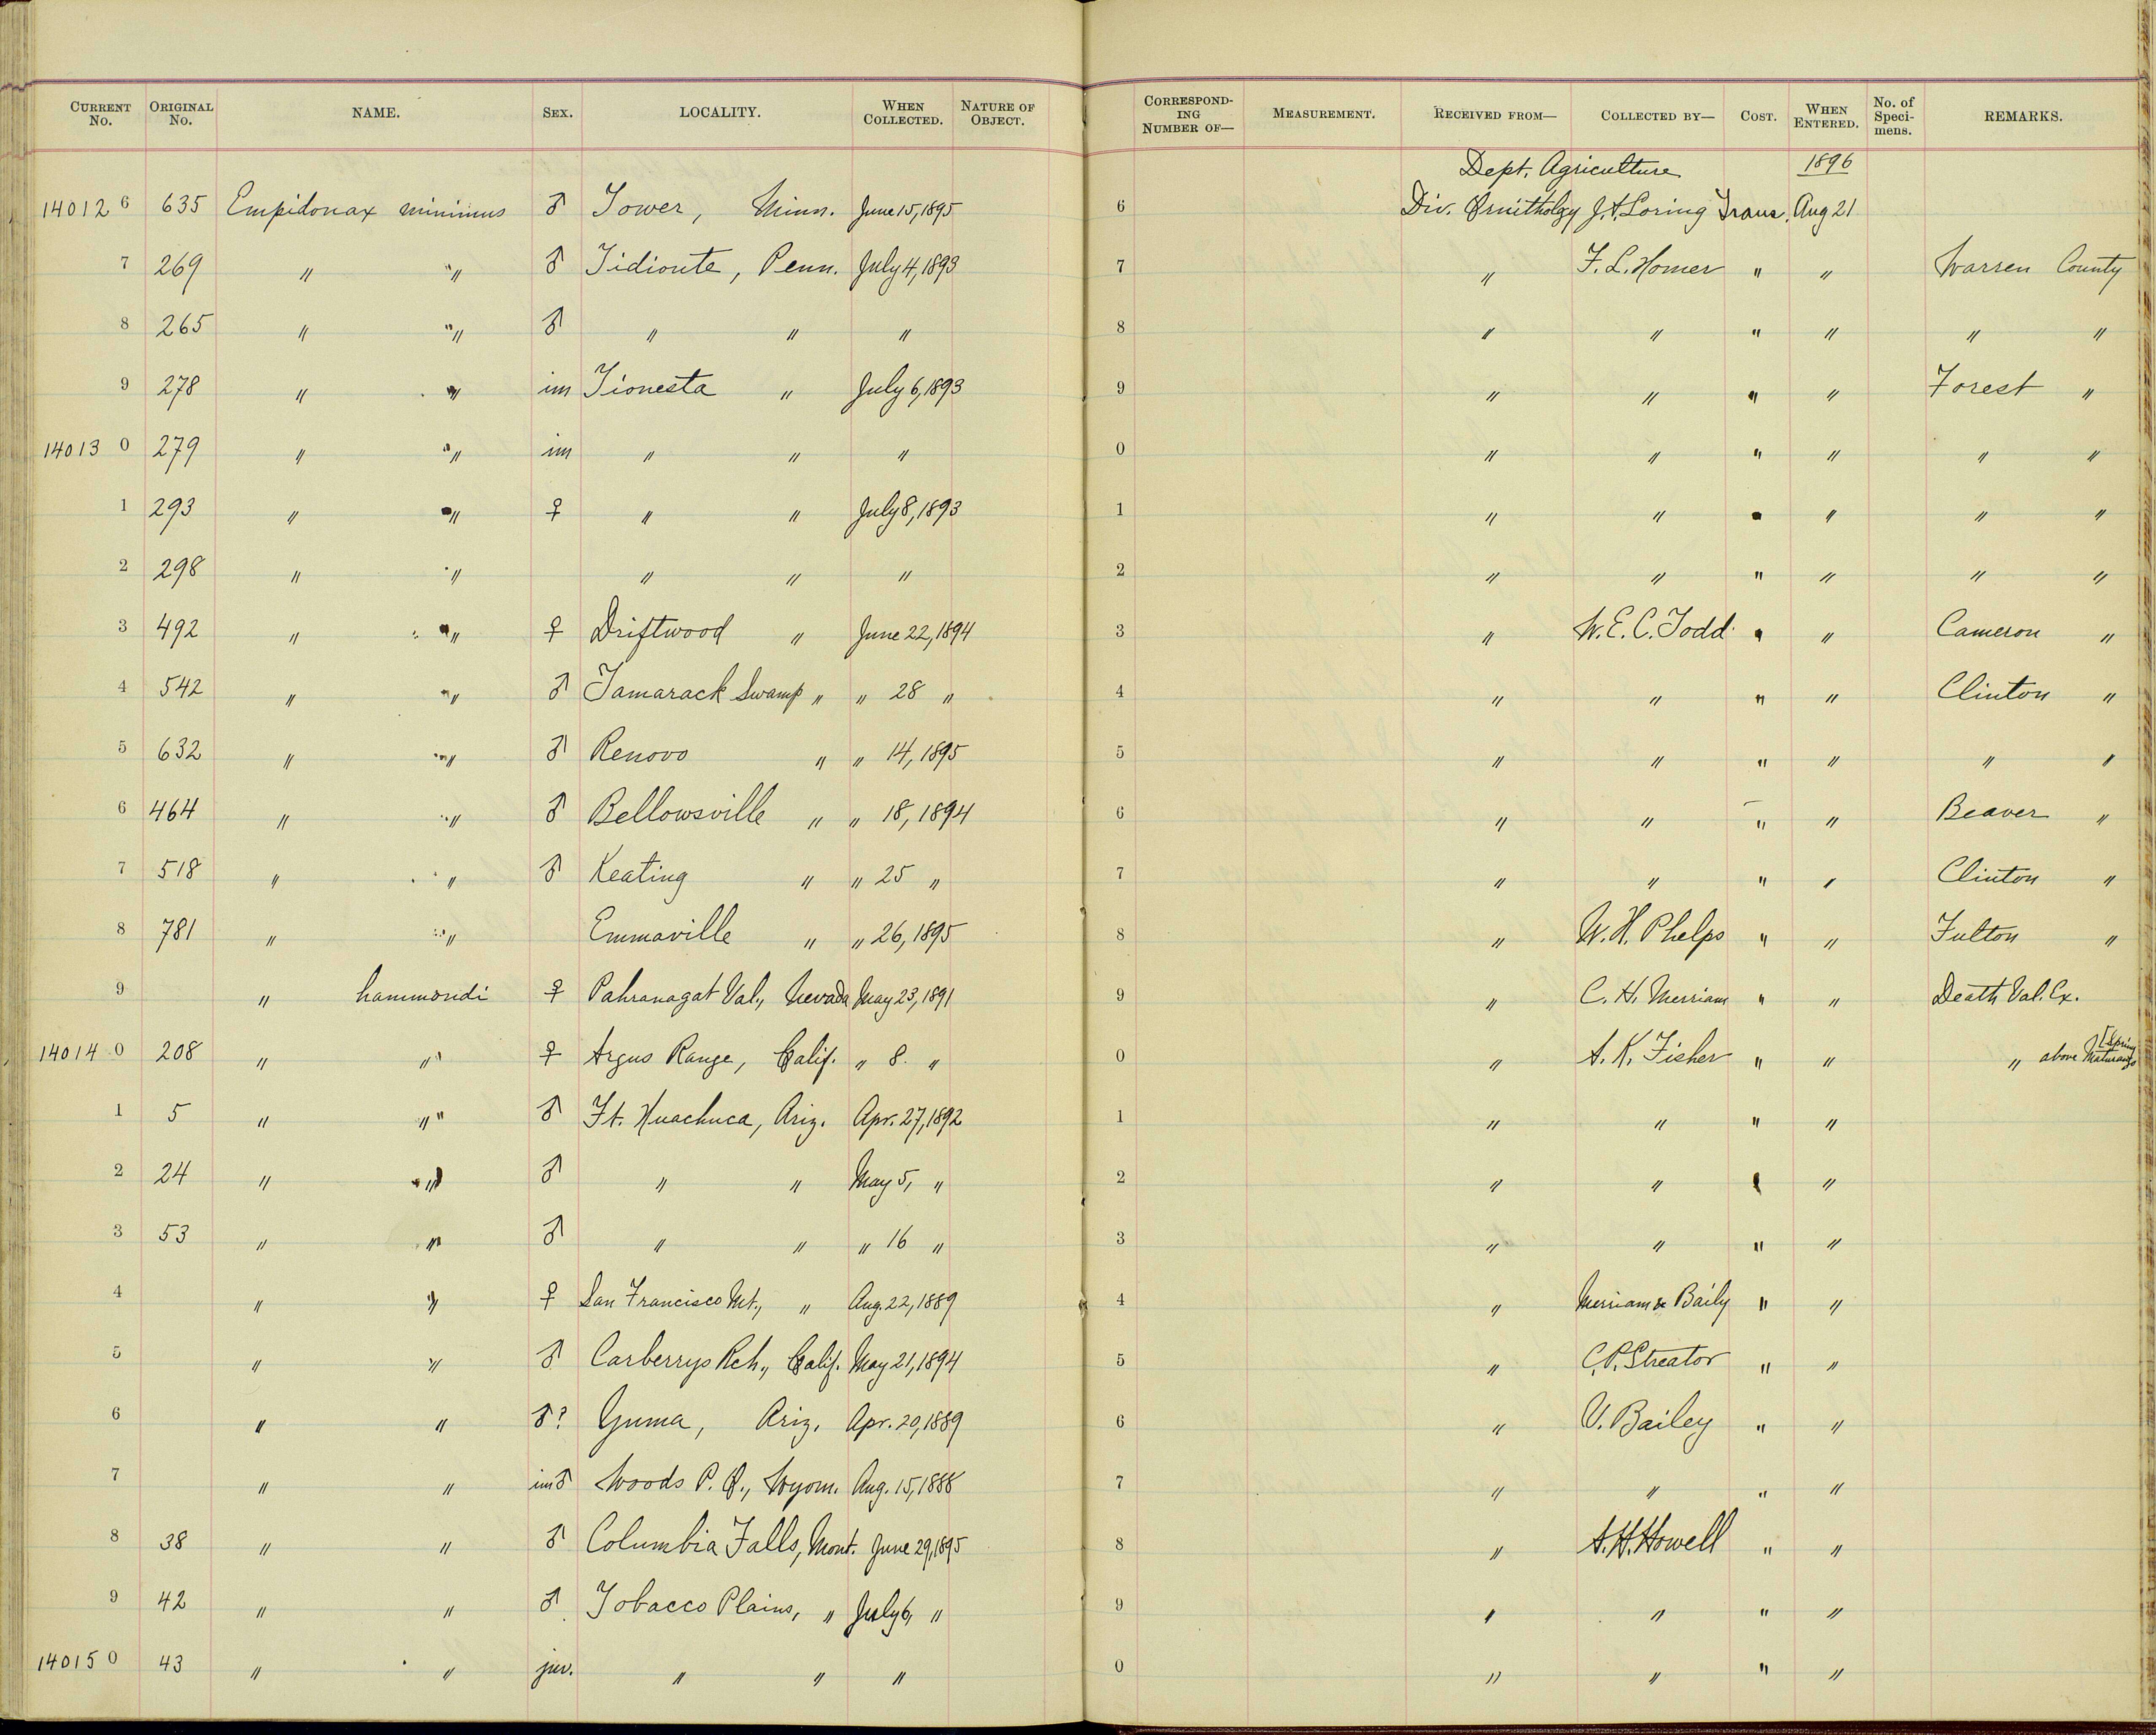 CURRENT No. ORIGINAL No. NAME. SEX. LOCALITY. WHEN COLLECTED. NATURE OF OBJECT. CORRESPONDING NUMBER OF— MEASUREMENT. RECEIVED FROM— COLLECTED BY— COST. WHEN ENTERED. No. of Specimens. REMARKS.
Dept. Agriculture 1896
14012 6 635 Empidonax minimus ♂ Tower, Minn. June 15, 1895 6 Div. Ornitholgy J.A. Loring Trans. Aug 21
7 269 " " ♂ Tidioute, Penn. July 4, 1893 7 " F. L. Homer " " Warren County
8 265 " " ♂ " " " 8 " " " " " "
9 278 " " im Tionesta " July 6, 1893 9 " " " " Forest "
14013 0 279 " " im " " " 0 " " " " " "
1 293 " " ♀ " " July 8, 1893 1 " " " " " "
2 298 " " " " " 2 " " " " " "
3 492 " " ♀ Driftwood " June 22, 1894 3 " W. E. C. Todd " " Cameron "
4 542 " " ♂ Tamarack Swamp " " 28 " 4 " " " " Clinton "
5 632 " " ♂ Renovo " " 14, 1895 5 " " " " " "
6 464 " " ♂ Bellowsville " " 18, 1894 6 " " " " Beaver "
7 518 " " ♂ Keating " " 25 " 7 " " " " Clinton "
8 781 " " Emmaville " " 26, 1895 8 " W. H. Phelps " " Fulton "
9 " hammondi ♀ Pahranagat Val., Nevada May 23, 1891 9 " C. H. Merriam " " Death Val. Ex.
14014 0 208 " " ♀ Argus Range, Calif. " 8 " 0 " A. K. Fisher " " " above Maturango [Spring
1 5 " " ♂ Ft. Huachuca, Ariz. Apr. 27, 1892 1 " " " "
2 24 " " ♂ " " May 5, " 2 " " " "
3 53 " " ♂ " " " 16 " 3 " " " "
4 " " ♀ San Francisco Mt., " Aug. 22, 1889 4 " Merriam & Baily " "
5 " " ♂ Carberrys Rch., Calif. May 21, 1894 5 " C. P. Streator " "
6 " " ♂? Yuma, Ariz. Apr. 20, 1889 6 " V. Bailey " "
7 " " im ♂ Woods P. O., Wyom. Aug. 15, 1888 7 " " " "
8 38 " " ♂ Columbia Falls, Mont. June 29, 1895 8 " A. H. Howell " "
9 42 " " ♂ Tobacco Plains, " July 6, " 9 " " " "
14015 0 43 " " juv. " " " 0 " " " "